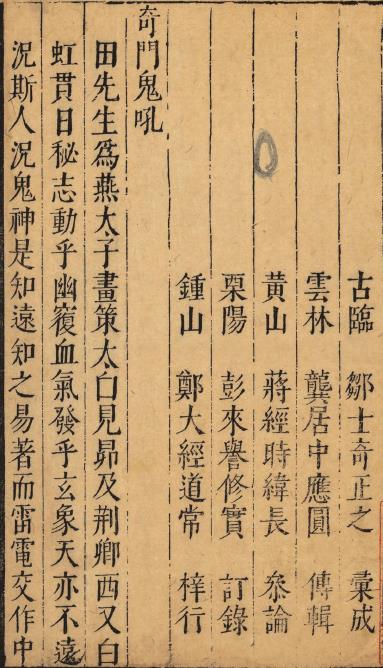 古臨　鄒士奇正之　彙成
雲林　龔居中應圓　傳輯
黃山　蔣經時緯長　叅論
栗陽　彭來譽修實　訂錄
鍾山　鄭大經道常　梓行
奇門鬼吼
田先生爲燕太子畫策太白見昴及荆卿西又白
虹貫日秘志動乎幽窾血氣發乎玄象天亦不遠
況斯人況鬼神是知遠知之易著而雷電交作中